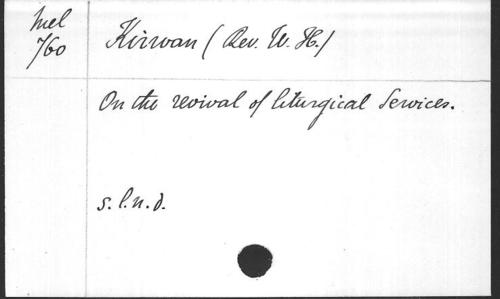 Mel
760
Kirwan (Rev. W. H.)
On the revival of liturgical Services.
s.l.n.d.